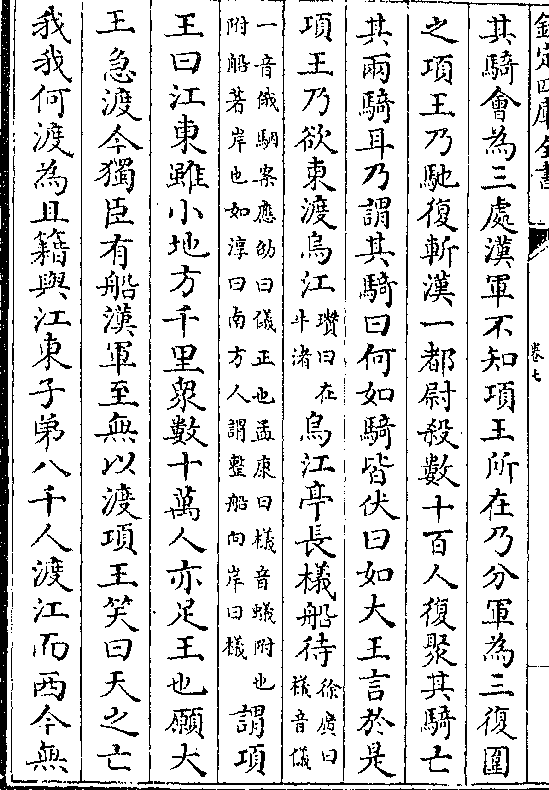 欽定四庫全書
卷七
其騎會為三處漢軍不知項王所在乃分軍為三復圍
之項王乃馳復斬漢一都尉殺數十百人復聚其騎亡
其兩騎耳乃謂其騎曰何如騎皆伏曰如大王言於是
項王乃欲東渡烏江瓚曰在牛渚烏江亭長檥船待徐廣曰檥音儀
一音俄駰案應劭曰檥正也孟康曰檥音蟻附也附船著岸也如淳曰南方人謂整船向岸曰檥謂項
王曰江東雖小地方千里衆數十萬人亦足王也願大
王急渡今獨臣有船漢軍至無以渡項王笑曰天之亡
我我何渡為且籍與江東子弟八千人渡江而西今無